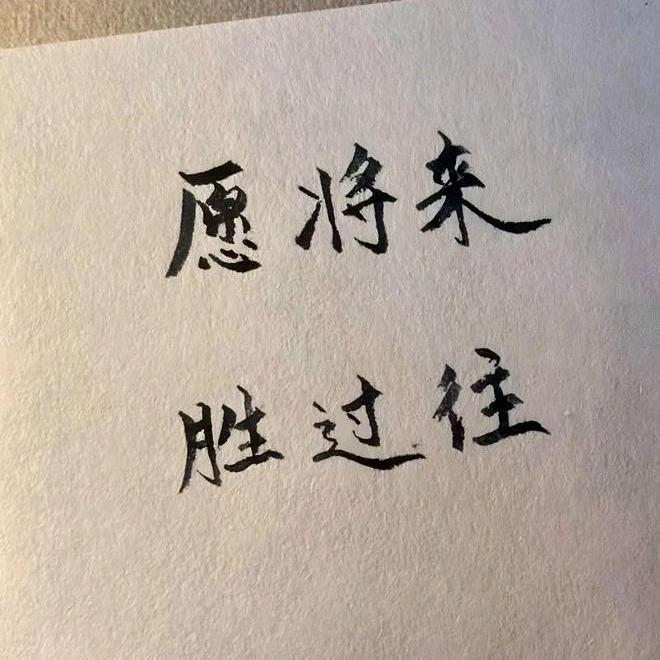 愿将来
胜过往